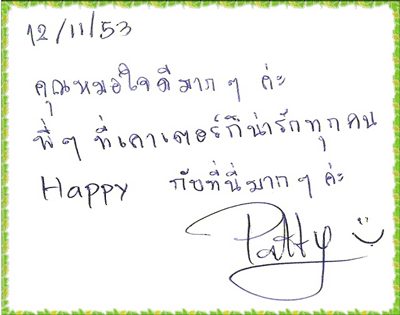 12/11/53
คุณหมอใจดีมาก ๆ ค่ะ
พี่ ๆ ที่เคาเตอร์ก็น่ารักทุกคน
Happy กับที่นี่มาก ๆ ค่ะ
Patty